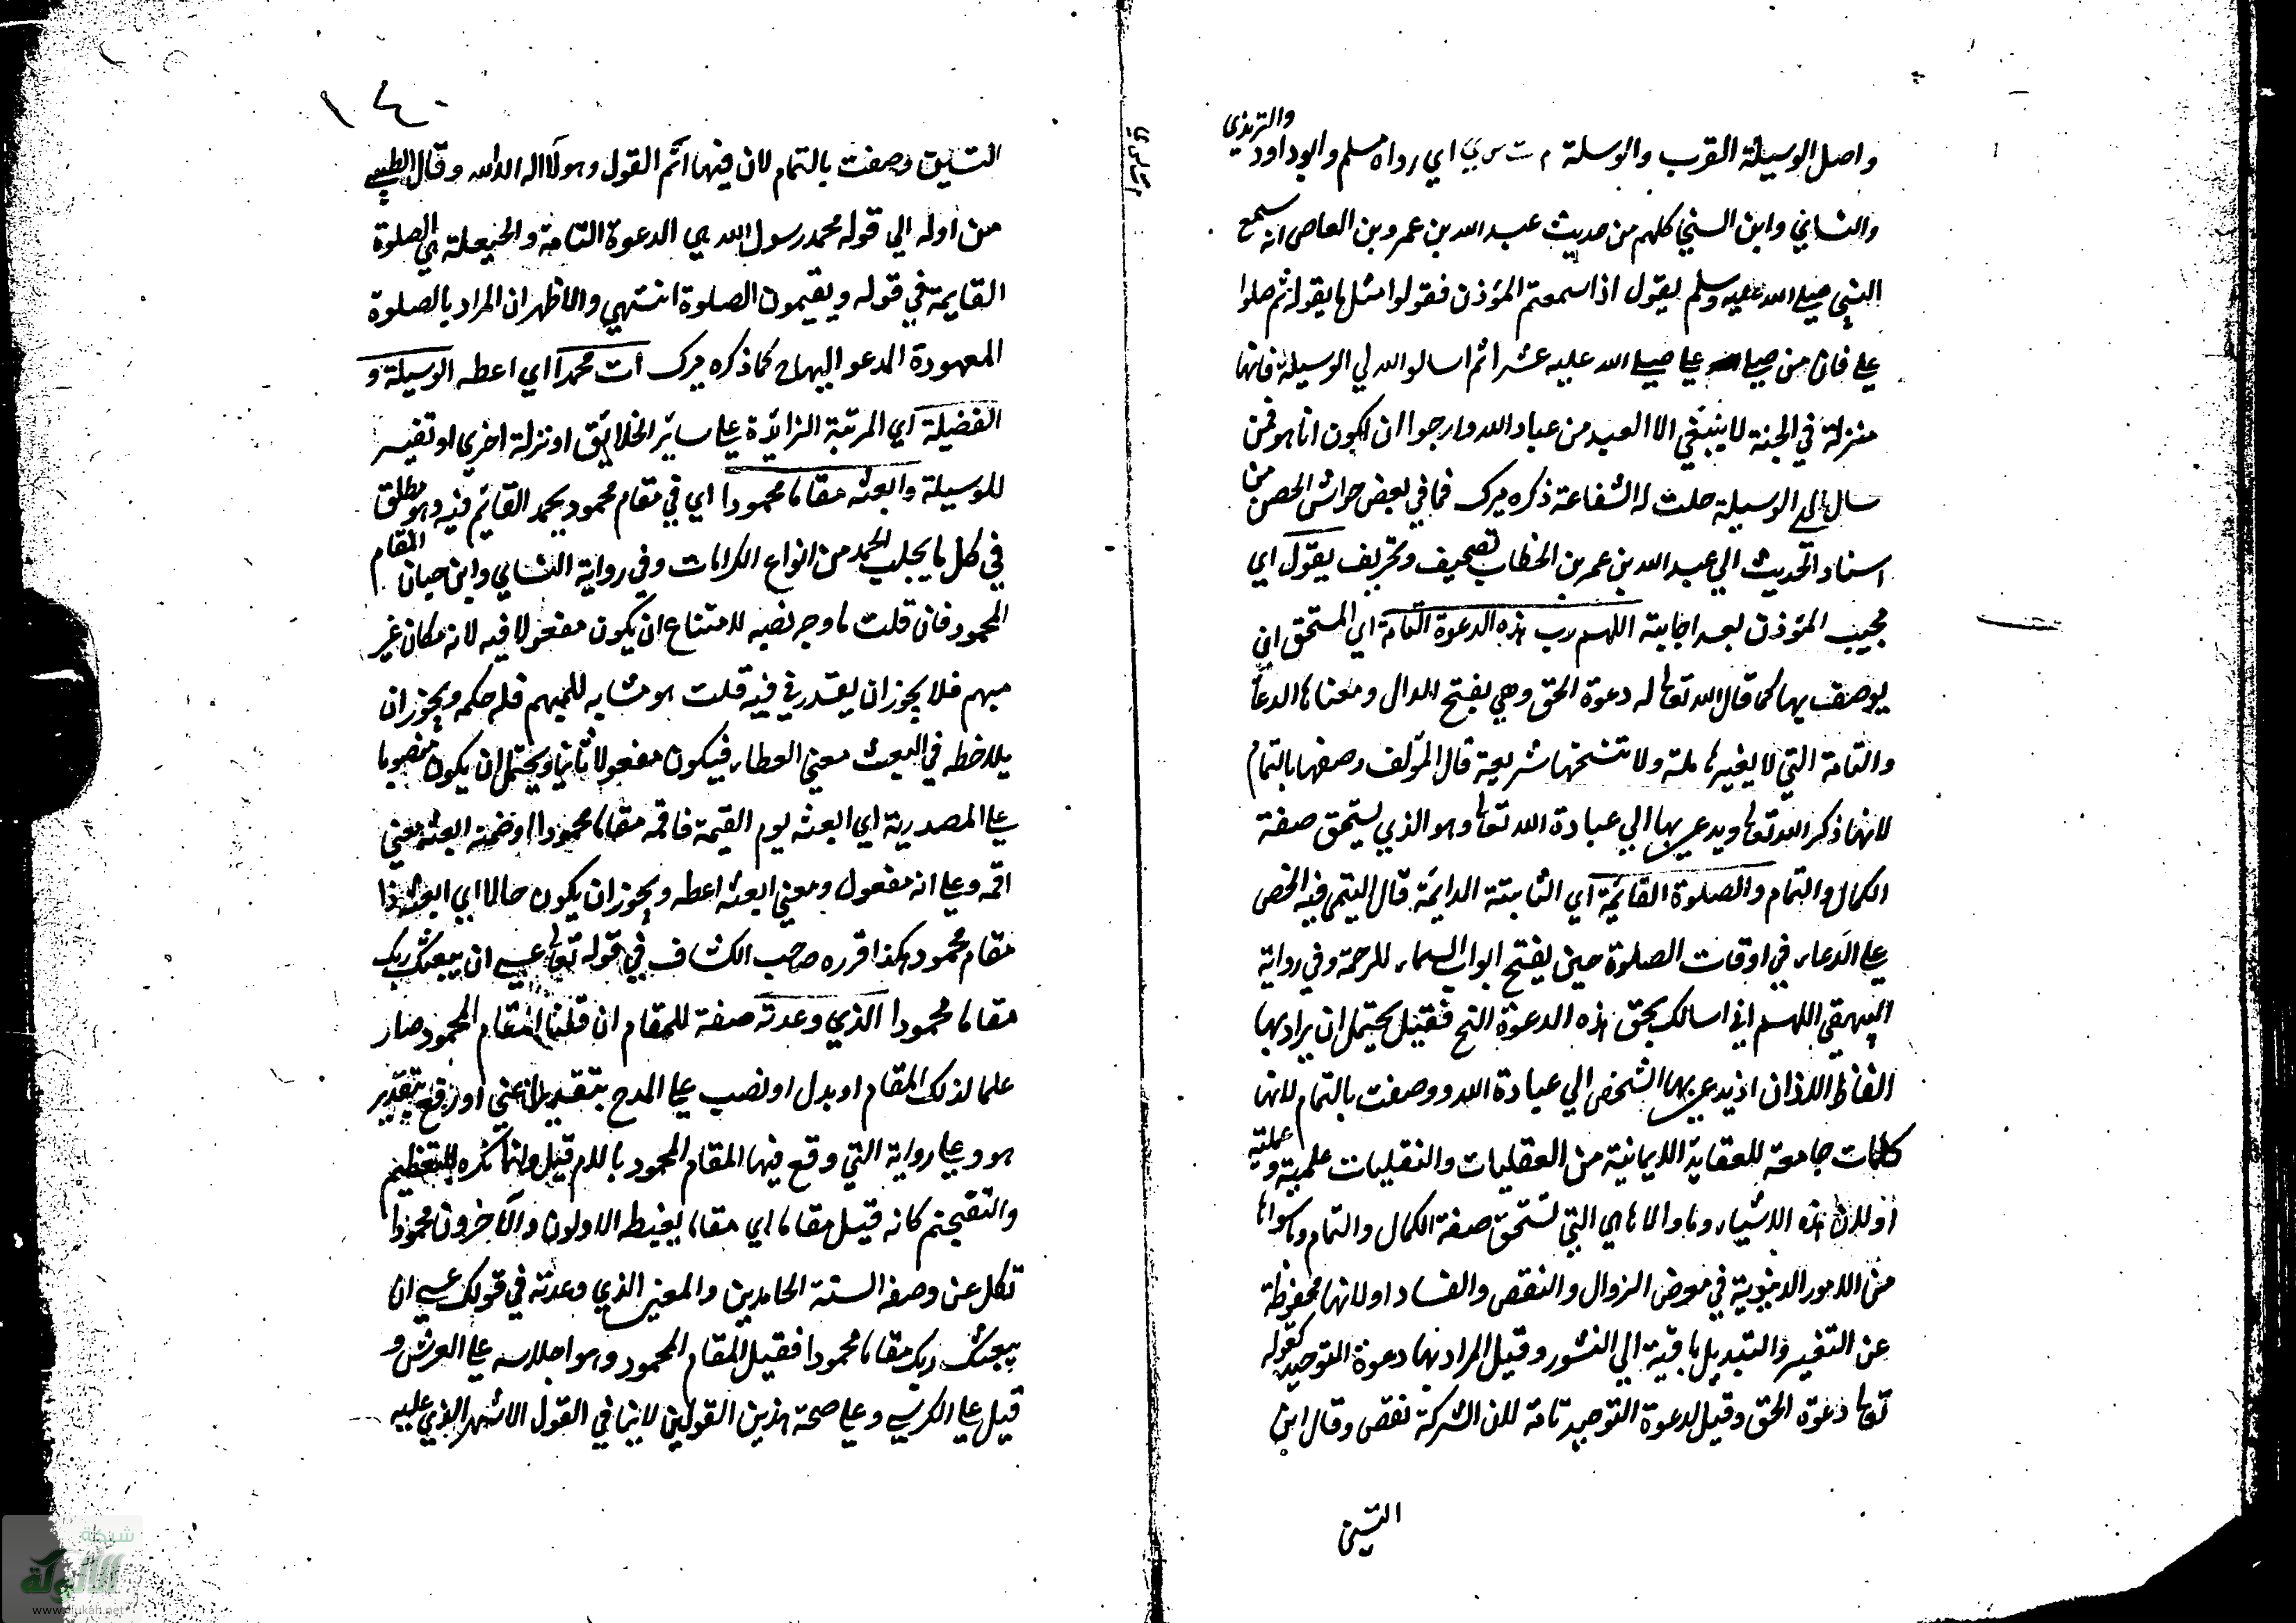 واصل الوسيلة القرب والوسلة م ت س ي اي رواه مسلم وابوداود والترمذي
والنسائي وابن السني كلهم من حديث عبد الله بن عمرو بن العاص انه سمع
النبي صلي الله عليه وسلم يقول اذا سمعتم المؤذن فقولوا مثل ما يقول ثم صلوا
علي فان من صلي علي صلي الله عليه عشرا ثم اسالوا الله لي الوسيلة فانها
منزلة في الجنة لا ينبغي الا لعبد من عباد الله وارجوا ان اكون انا هو فمن
سال لي الوسيلة حلت له الشفاعة ذكره ميرك فما في بعض حواشي الحصن من
اسناد الحديث الي عبد الله بن عمر بن الخطاب تصحيف وتحريف يقول اي
مجيب المؤذن بعد اجابته اللهم رب هذه الدعوة التامة اي المستحق ان
يوصف بها كما قال الله تعالى له دعوة الحق وهي بفتح الدال ومعناها الدعا
والتامة التي لا يغيرها ملة ولا تنسخها شريعة قال المؤلف وصفها بالتمام
لانها ذكر الله تعالى ويدعي بها الي عبادة الله تعالى وهو الذي يستحق صفة
الكمال والتمام والصلوة القائمة اي الثابتة الدايمة قال اليتمي فيه الحض
علي الدعاء في اوقات الصلوة حين يفتح ابواب السماء للرحمة وفي رواية
البيهقي اللهم اني اسالك بحق هذه الدعوة الخ فقيل يحتمل ان يراد بها
الفاظ الاذان اذ يدعي بها الشخص الي عبادة الله ووصفت بالتمام لانها
كلمات جامعة للعقايد الايمانية من العقليات والنقليات علمية وعملية
اولان هذه الاشياء وما والاها هي التي تستحق صفة الكمال والتمام وما سواها
من الامور الدنيوية في معرض الزوال والنقص والفساد اولانها محفوظة
عن التغيير والتبديل باقية الي النشور وقيل المراد بها دعوة التوحيد كقوله
تعالى دعوة الحق وقيل لدعوة التوحيد تامة لان الشركة نقص وقال ابن
التين
التين وصفت بالتمام لان فيها اتم القول وهو لا اله الا الله وقال الطيبي
من اوله الي قوله محمد رسول الله هي الدعوة التامة والحيعلة هي الصلوة
القايمة في قوله ويقيمون الصلوة انتهي والاظهر ان المراد بالصلوة
المعهودة المدعو اليها ح كما ذكره ميرك ات محمدا اي اعطه الوسيلة و
الفضيلة اي المرتبة الزائدة علي سائر الخلائق او منزلة اخري او تفسير
للوسيلة وابعثه مقاما محمودا اي في مقام محمود يحمد القائم فيه وهو مطلق
في كل ما يجلب الحمد من انواع الكرامات وفي رواية النسائي وابن حبان المقام
المحمود فان قلت ما وجه نصبه لامتناع ان يكون مفعولا فيه لانه مكان غير
مبهم فلا يجوز ان يقدر في فيه قلت هو مشابه للمبهم فله حكمه ويجوز ان
يلاحظ في البعث معني العطاء فيكون مفعولا ثانيا ويحتمل ان يكون منصوبا
علي المصدرية اي ابعثه يوم القيمة فاقمه مقاما محمودا او ضمن ابعثه معني
اقمه وعلي انه مفعول ومعني ابعثه اعطه ويجوز ان يكون حالا اي ابعثه ذا
مقام محمود هكذا قرره صاحب الكشاف في قوله تعالى عسي ان يبعثك ربك
مقاما محمودا الذي وعدته صفة للمقام ان قلنا المقام المحمود صار
علما لذلك المقام او بدل او نصب علي المدح بتقدير اعني او رفع بتقدير
هو وعلي رواية التي وقع فيها المقام المحمود باللام قيل وانما نكره للتعظيم
والتفخيم كانه قيل مقاما اي مقاما يغبطه الاولون والآخرون محمودا
تكل عن وصفه السنة الحامدين والمعني الذي وعدته في قولك عسي ان
يبعثك ربك مقاما محمودا فقيل المقام المحمود هو اجلاسه علي العرش و
قيل علي الكرسي وعلي صحة هذين القولين لا ينافي القول الاشهر الذي عليه